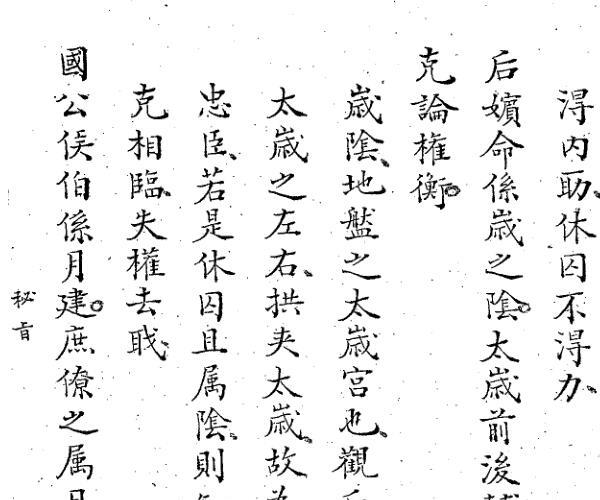 淂内助、休囚不淂力、
后嬪命係歲之陰。太歲前後
克論權衡。
歲陰、地盤之太歲宮也、觀
太歲之左右、拱夾太歲、故
忠臣、若是休囚且属陰、則
克相臨、失權去職、
國公侯伯係月建。庶僚之属
秘旨